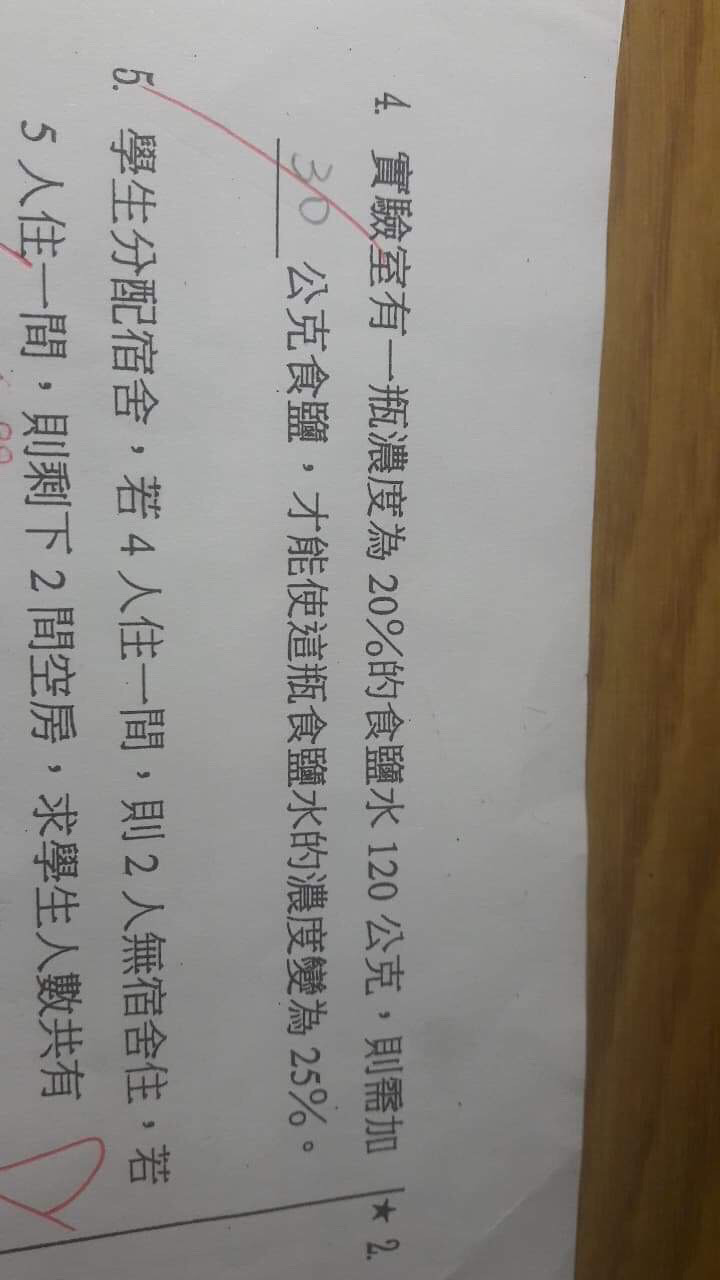 4. 實驗室有一瓶濃度為 20%的食鹽水 120 公克，則需加
30 公克食鹽，才能使這瓶食鹽水的濃度變為 25%。
5. 學生分配宿舍，若 4 人住一間，則 2 人無宿舍住，若
5 人住一間，則剩下 2 間空房，求學生人數共有
★ 2.